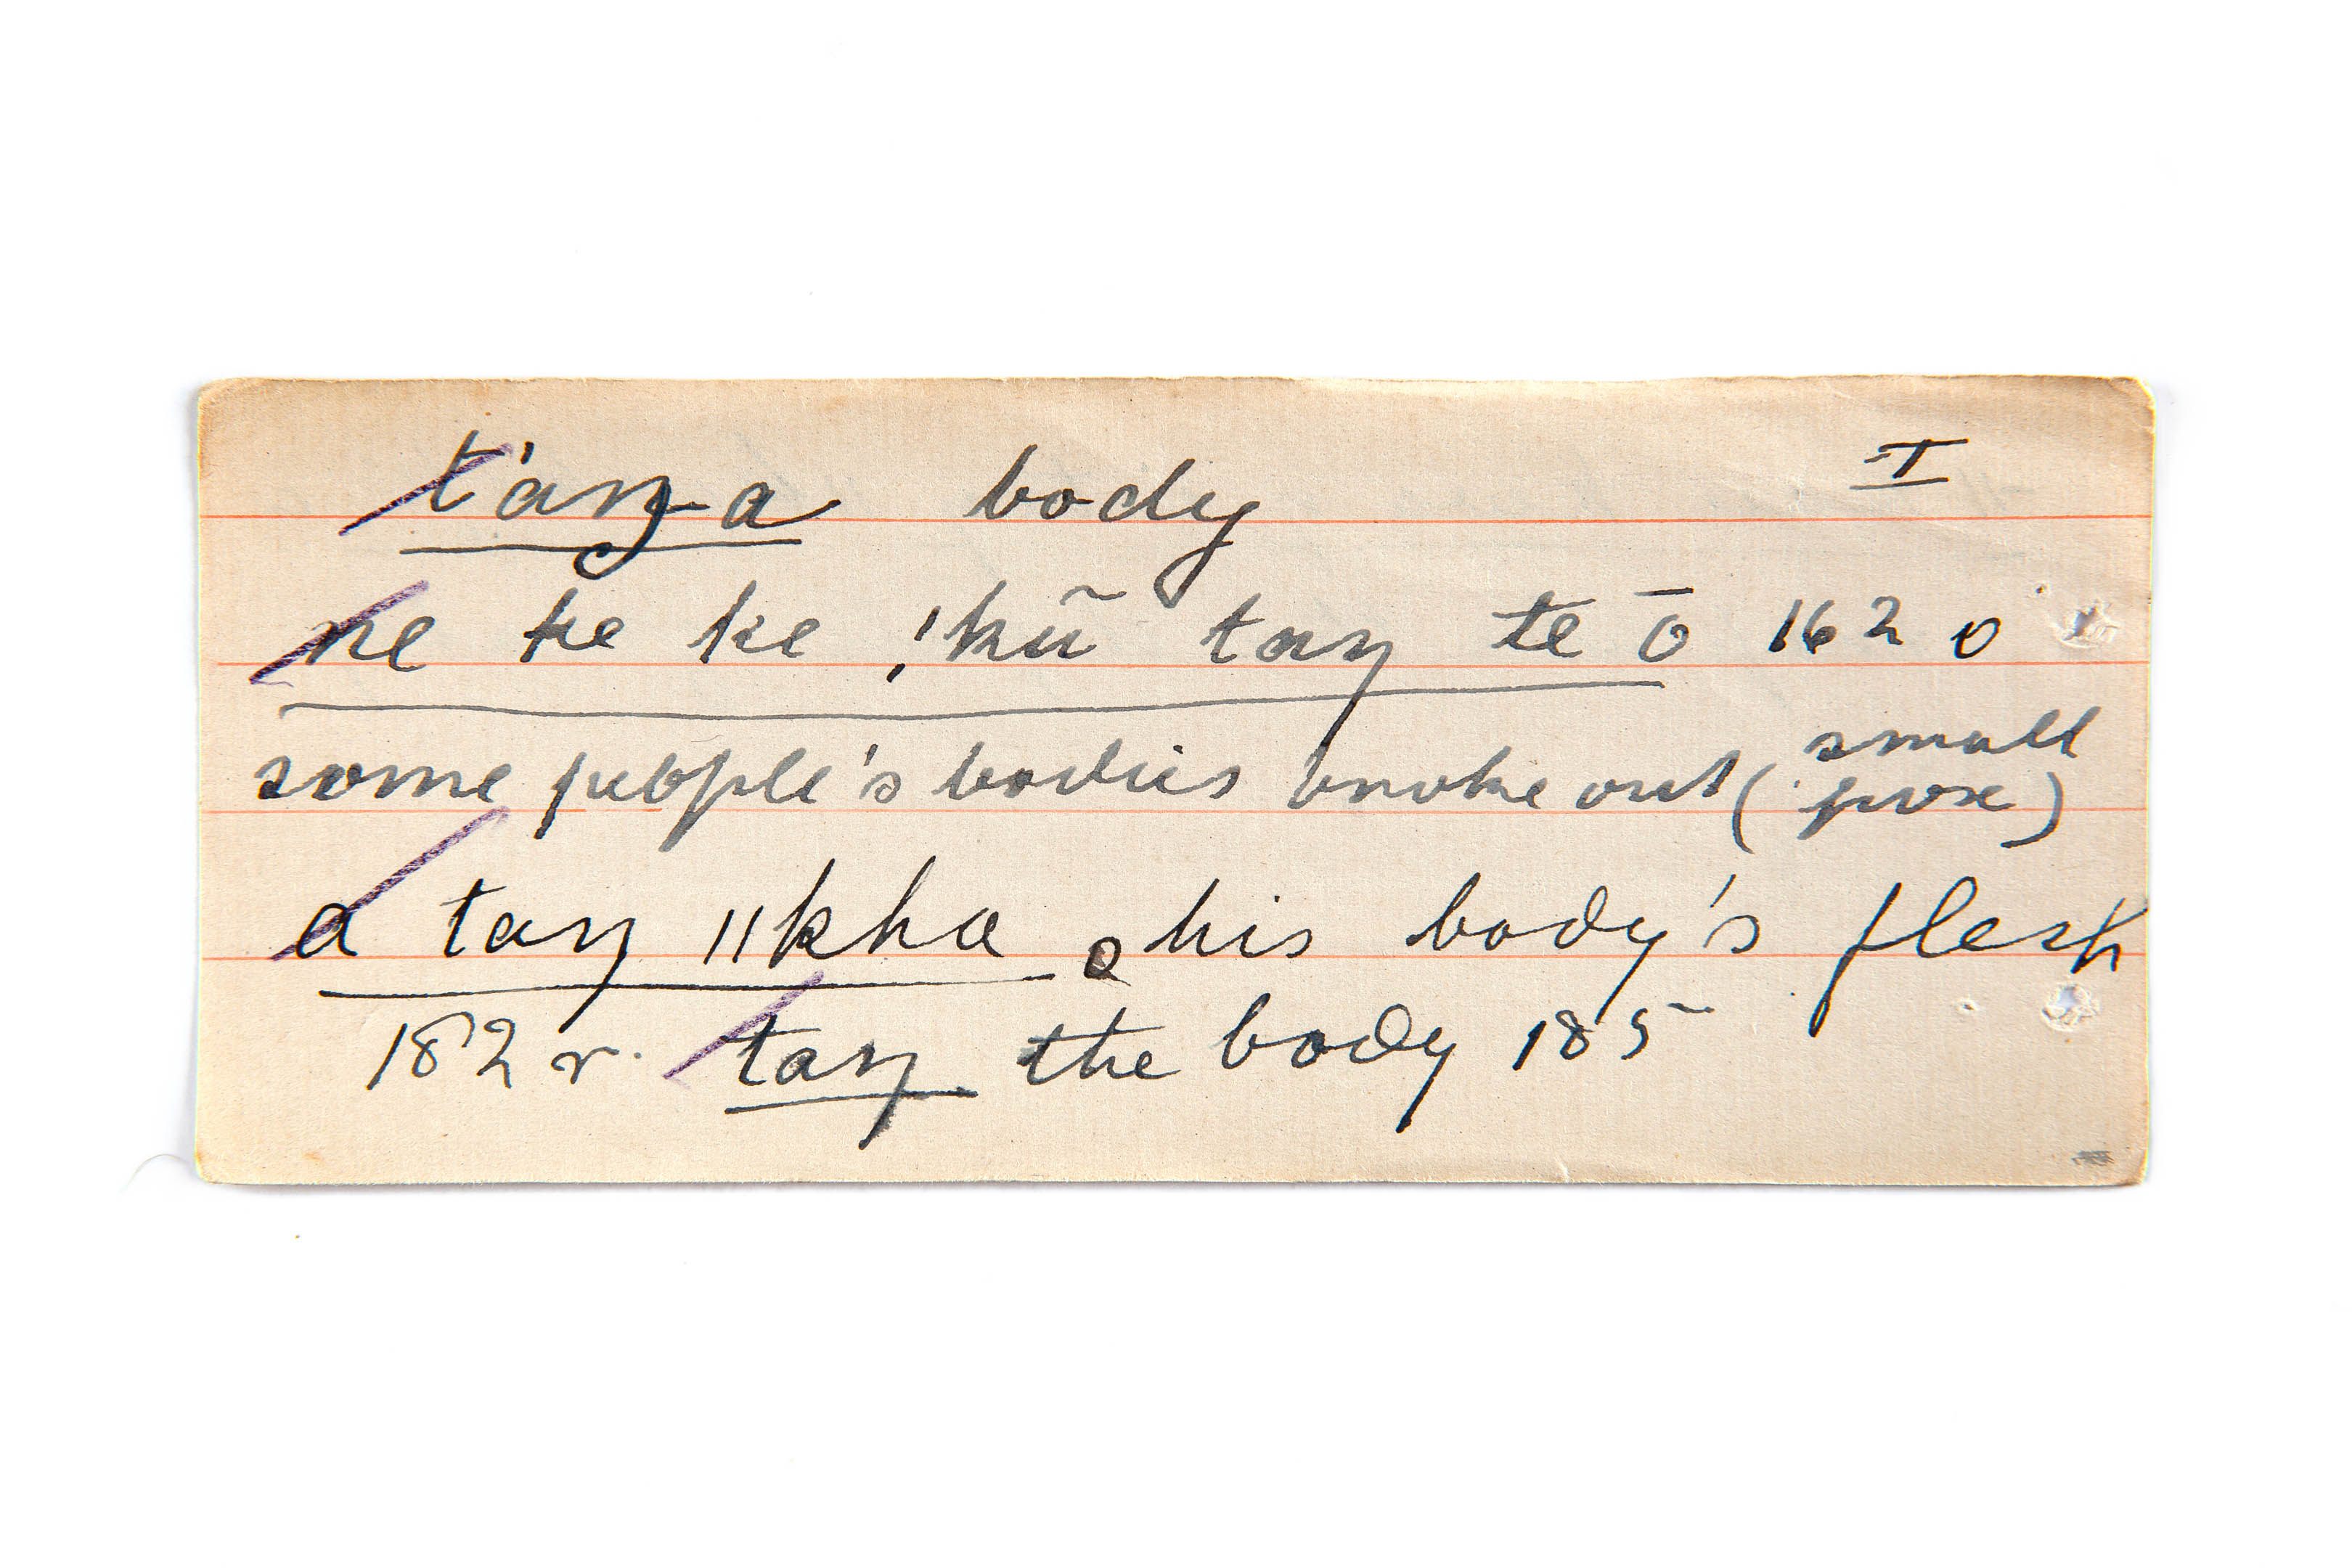 t'aŋ-a body I
ne ke ke !kũ taŋ te ō 162 o
some people's bodies broke out (small pox)
a taŋ ǁkha his body's flesh
182 r. taŋ the body 185